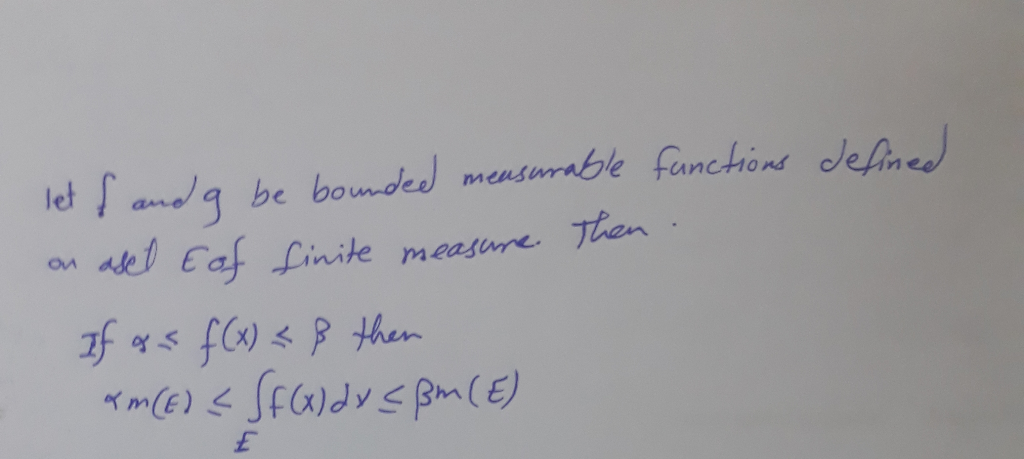 let f and g be bounded measurable functions defined
on a set E of finite measure. Then.
If α ≤ f(x) ≤ β then
α m(E) ≤ ∫f(x)dx ≤ βm(E)
E